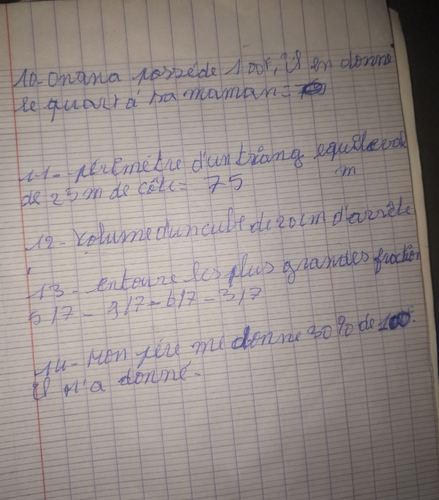 10- Onana possède 100F, il en donne
le quart à sa maman =
11- périmètre d'un triang equilateral
de 25 m de côté = 75 m
12- Volume d'un cube de 20 cm d'arrête
13- entoure les plus grandes fraction
5/7 - 9/7 - 6/7 - 3/7
14- Mon père me donne 30% de 100F.
il m'a donné -